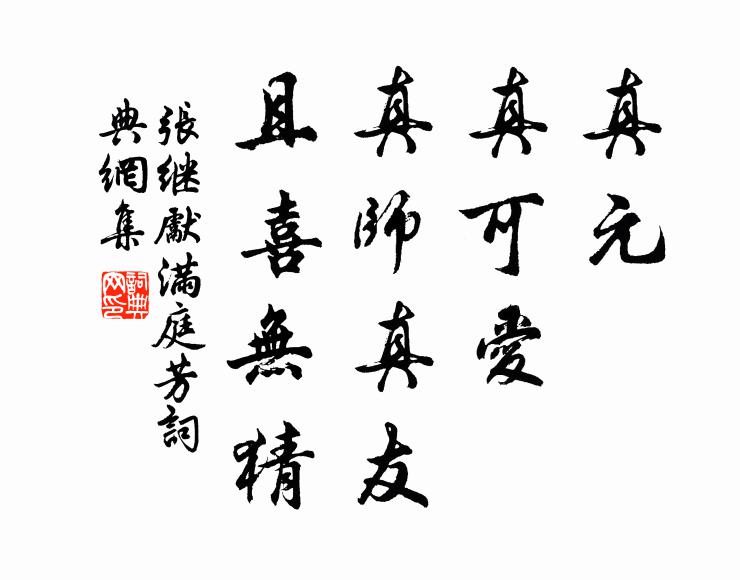 真元
真可愛
真師真友
且喜無猜
張继獻滿庭芳詞
典網集
詞典網印